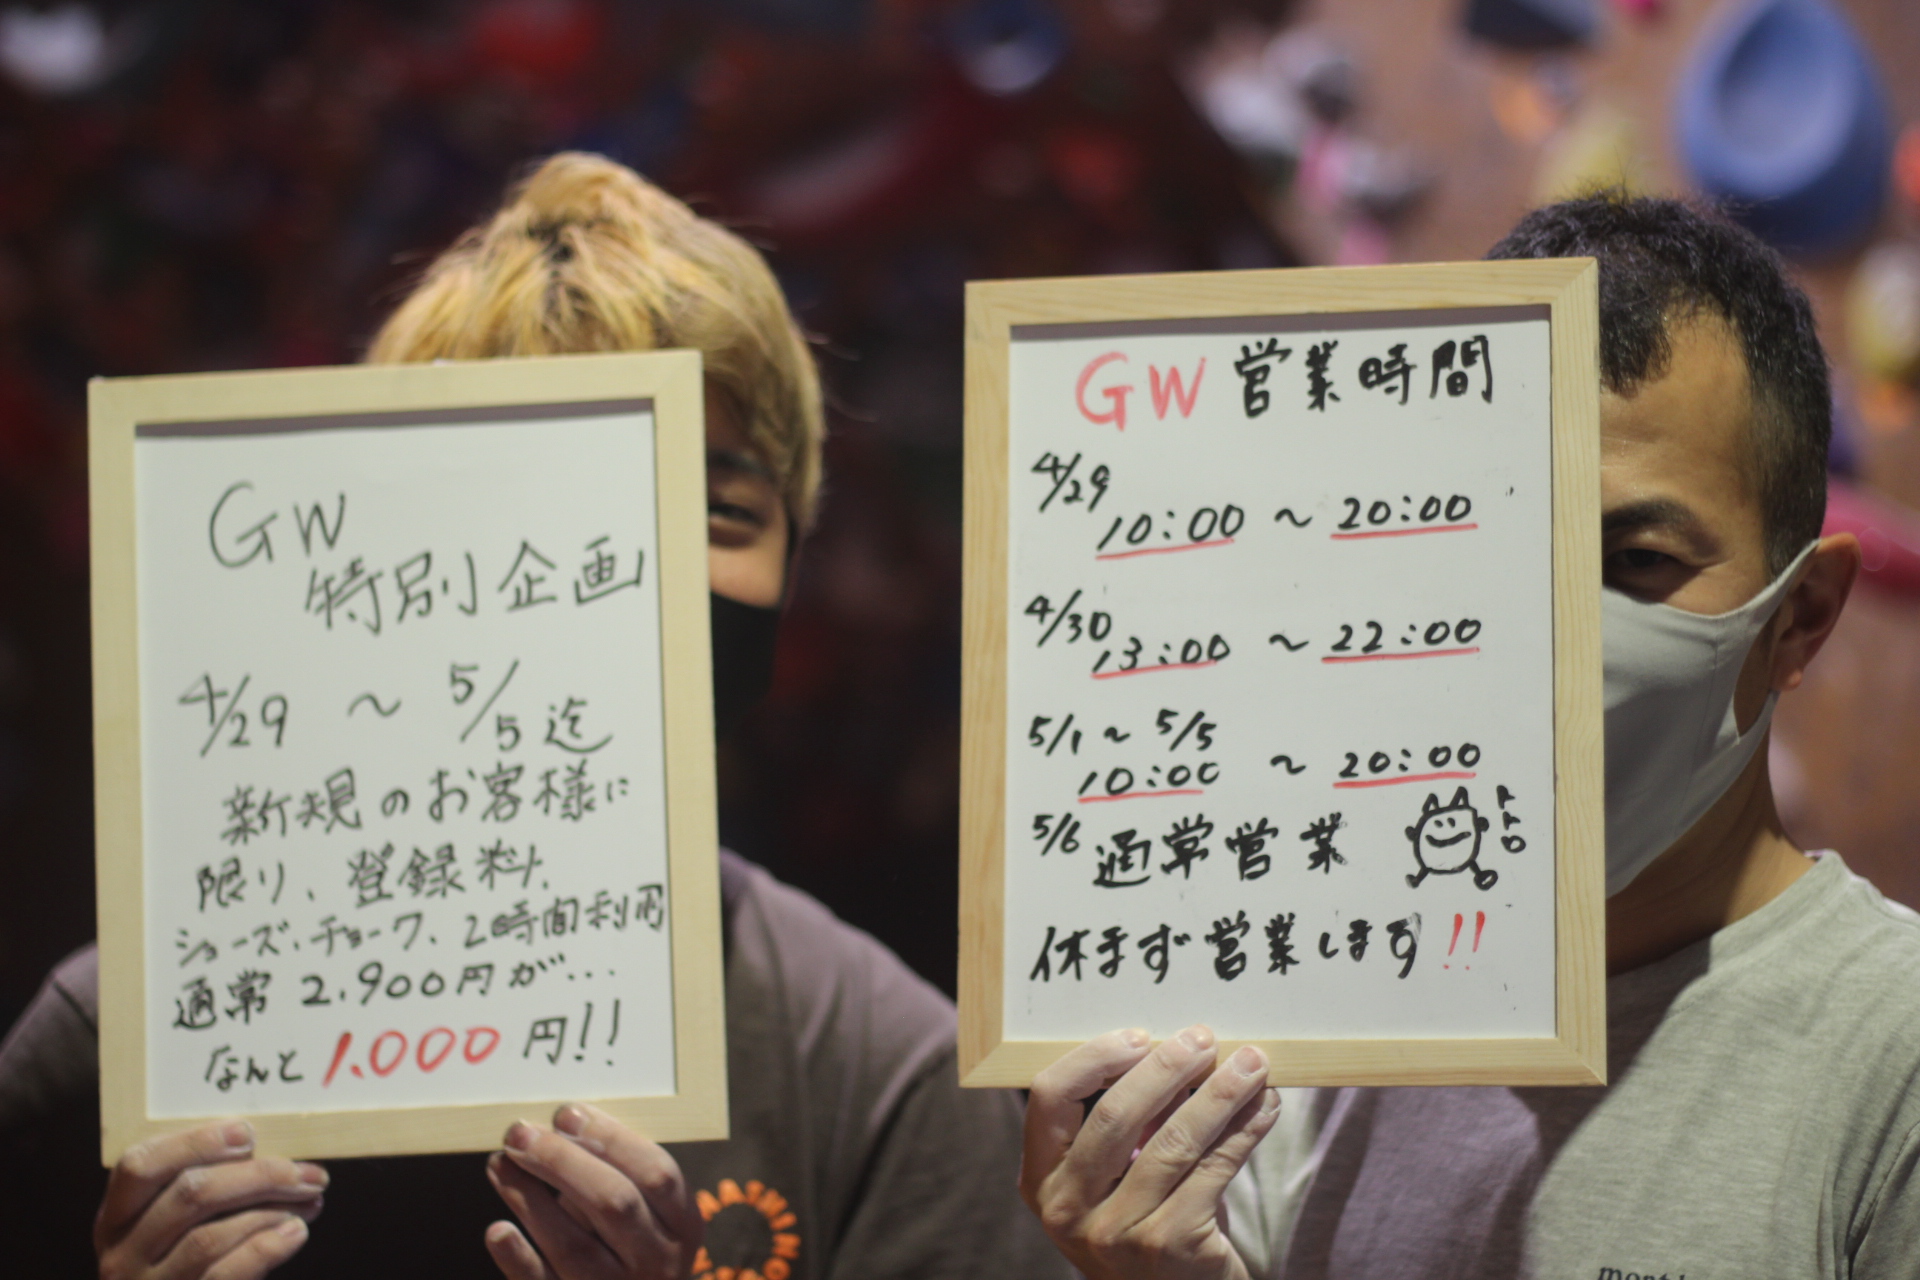 GW
特別企画
4/29 ～ 5/5 迄
新規のお客様に
限り、登録料、
シューズ、チョーク、2時間利用
通常 2.900円が...
なんと 1.000 円!!
GW 営業時間
4/29
10:00 ～ 20:00
4/30
13:00 ～ 22:00
5/1 ～ 5/5
10:00 ～ 20:00
5/6 通常営業
トトロ
休まず営業します!!